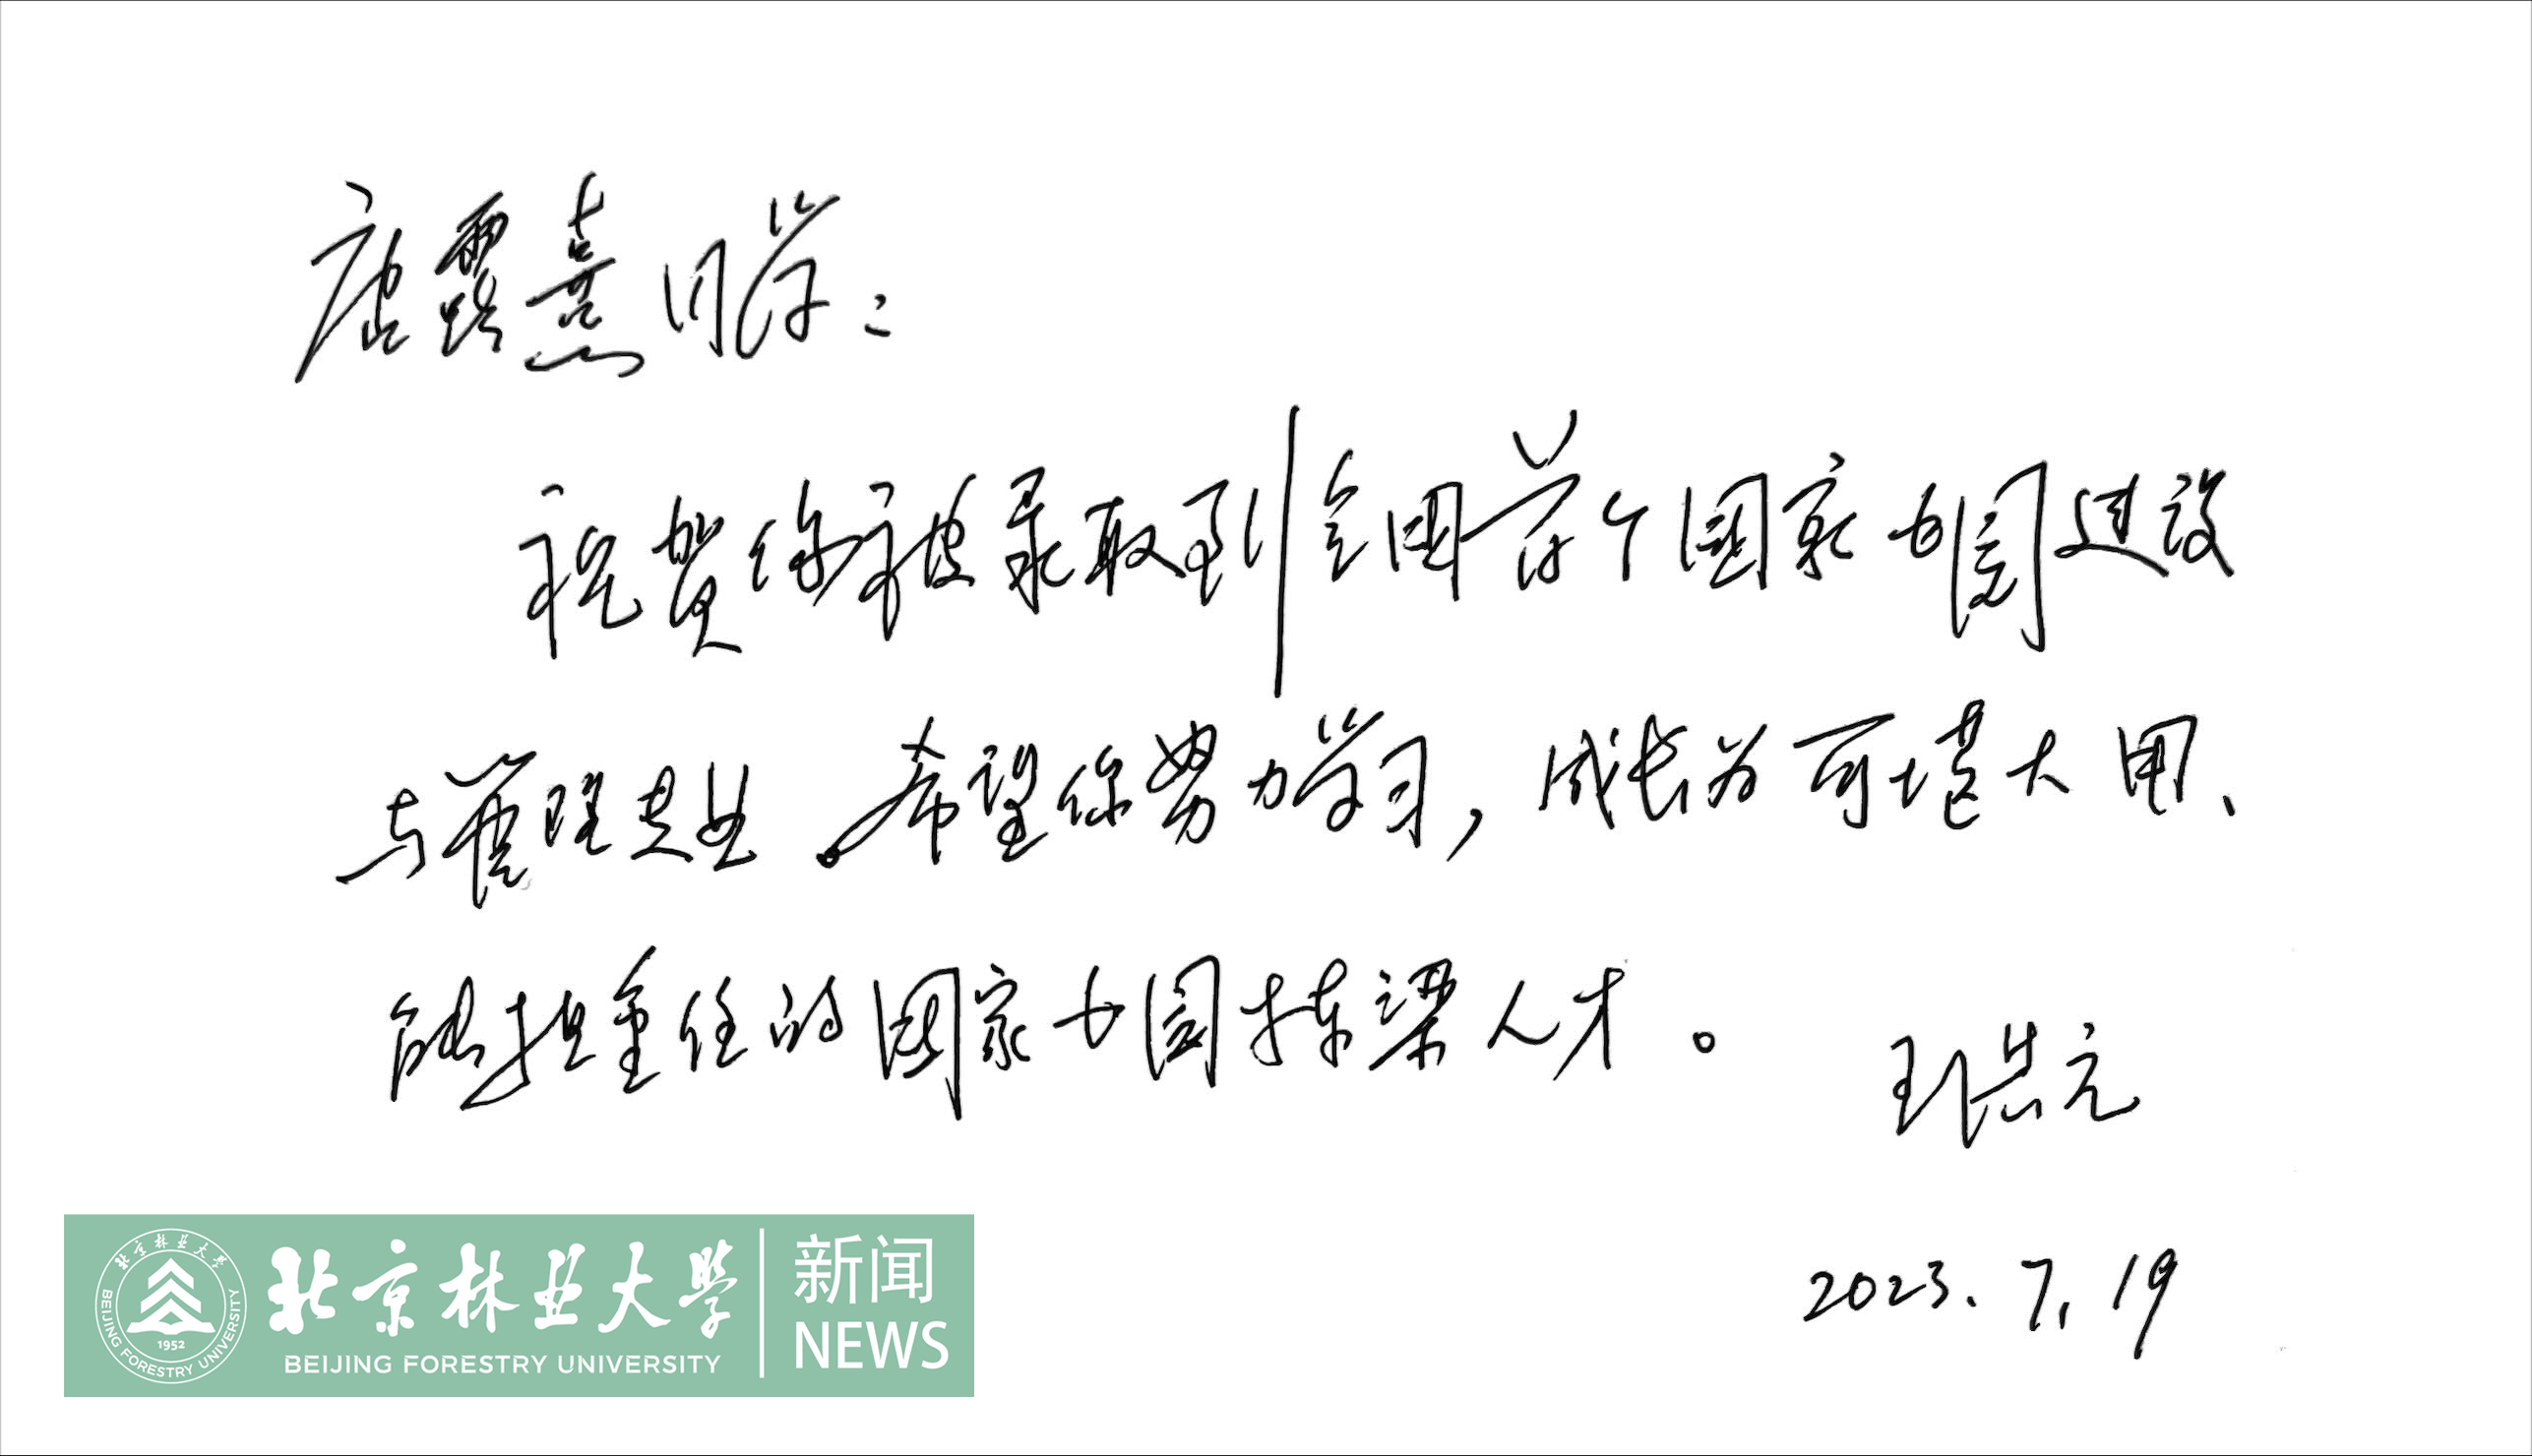 唐露熹同学：
祝贺你被录取到全国首个国家公园建设
与管理专业。希望你努力学习，成长为可堪大用、
能担重任的国家公园栋梁人才。
王洪元
2023.7.19
北京林业大学
BEIJING FORESTRY UNIVERSITY
1952
北京林业大学
BEIJING FORESTRY UNIVERSITY
新闻
NEWS